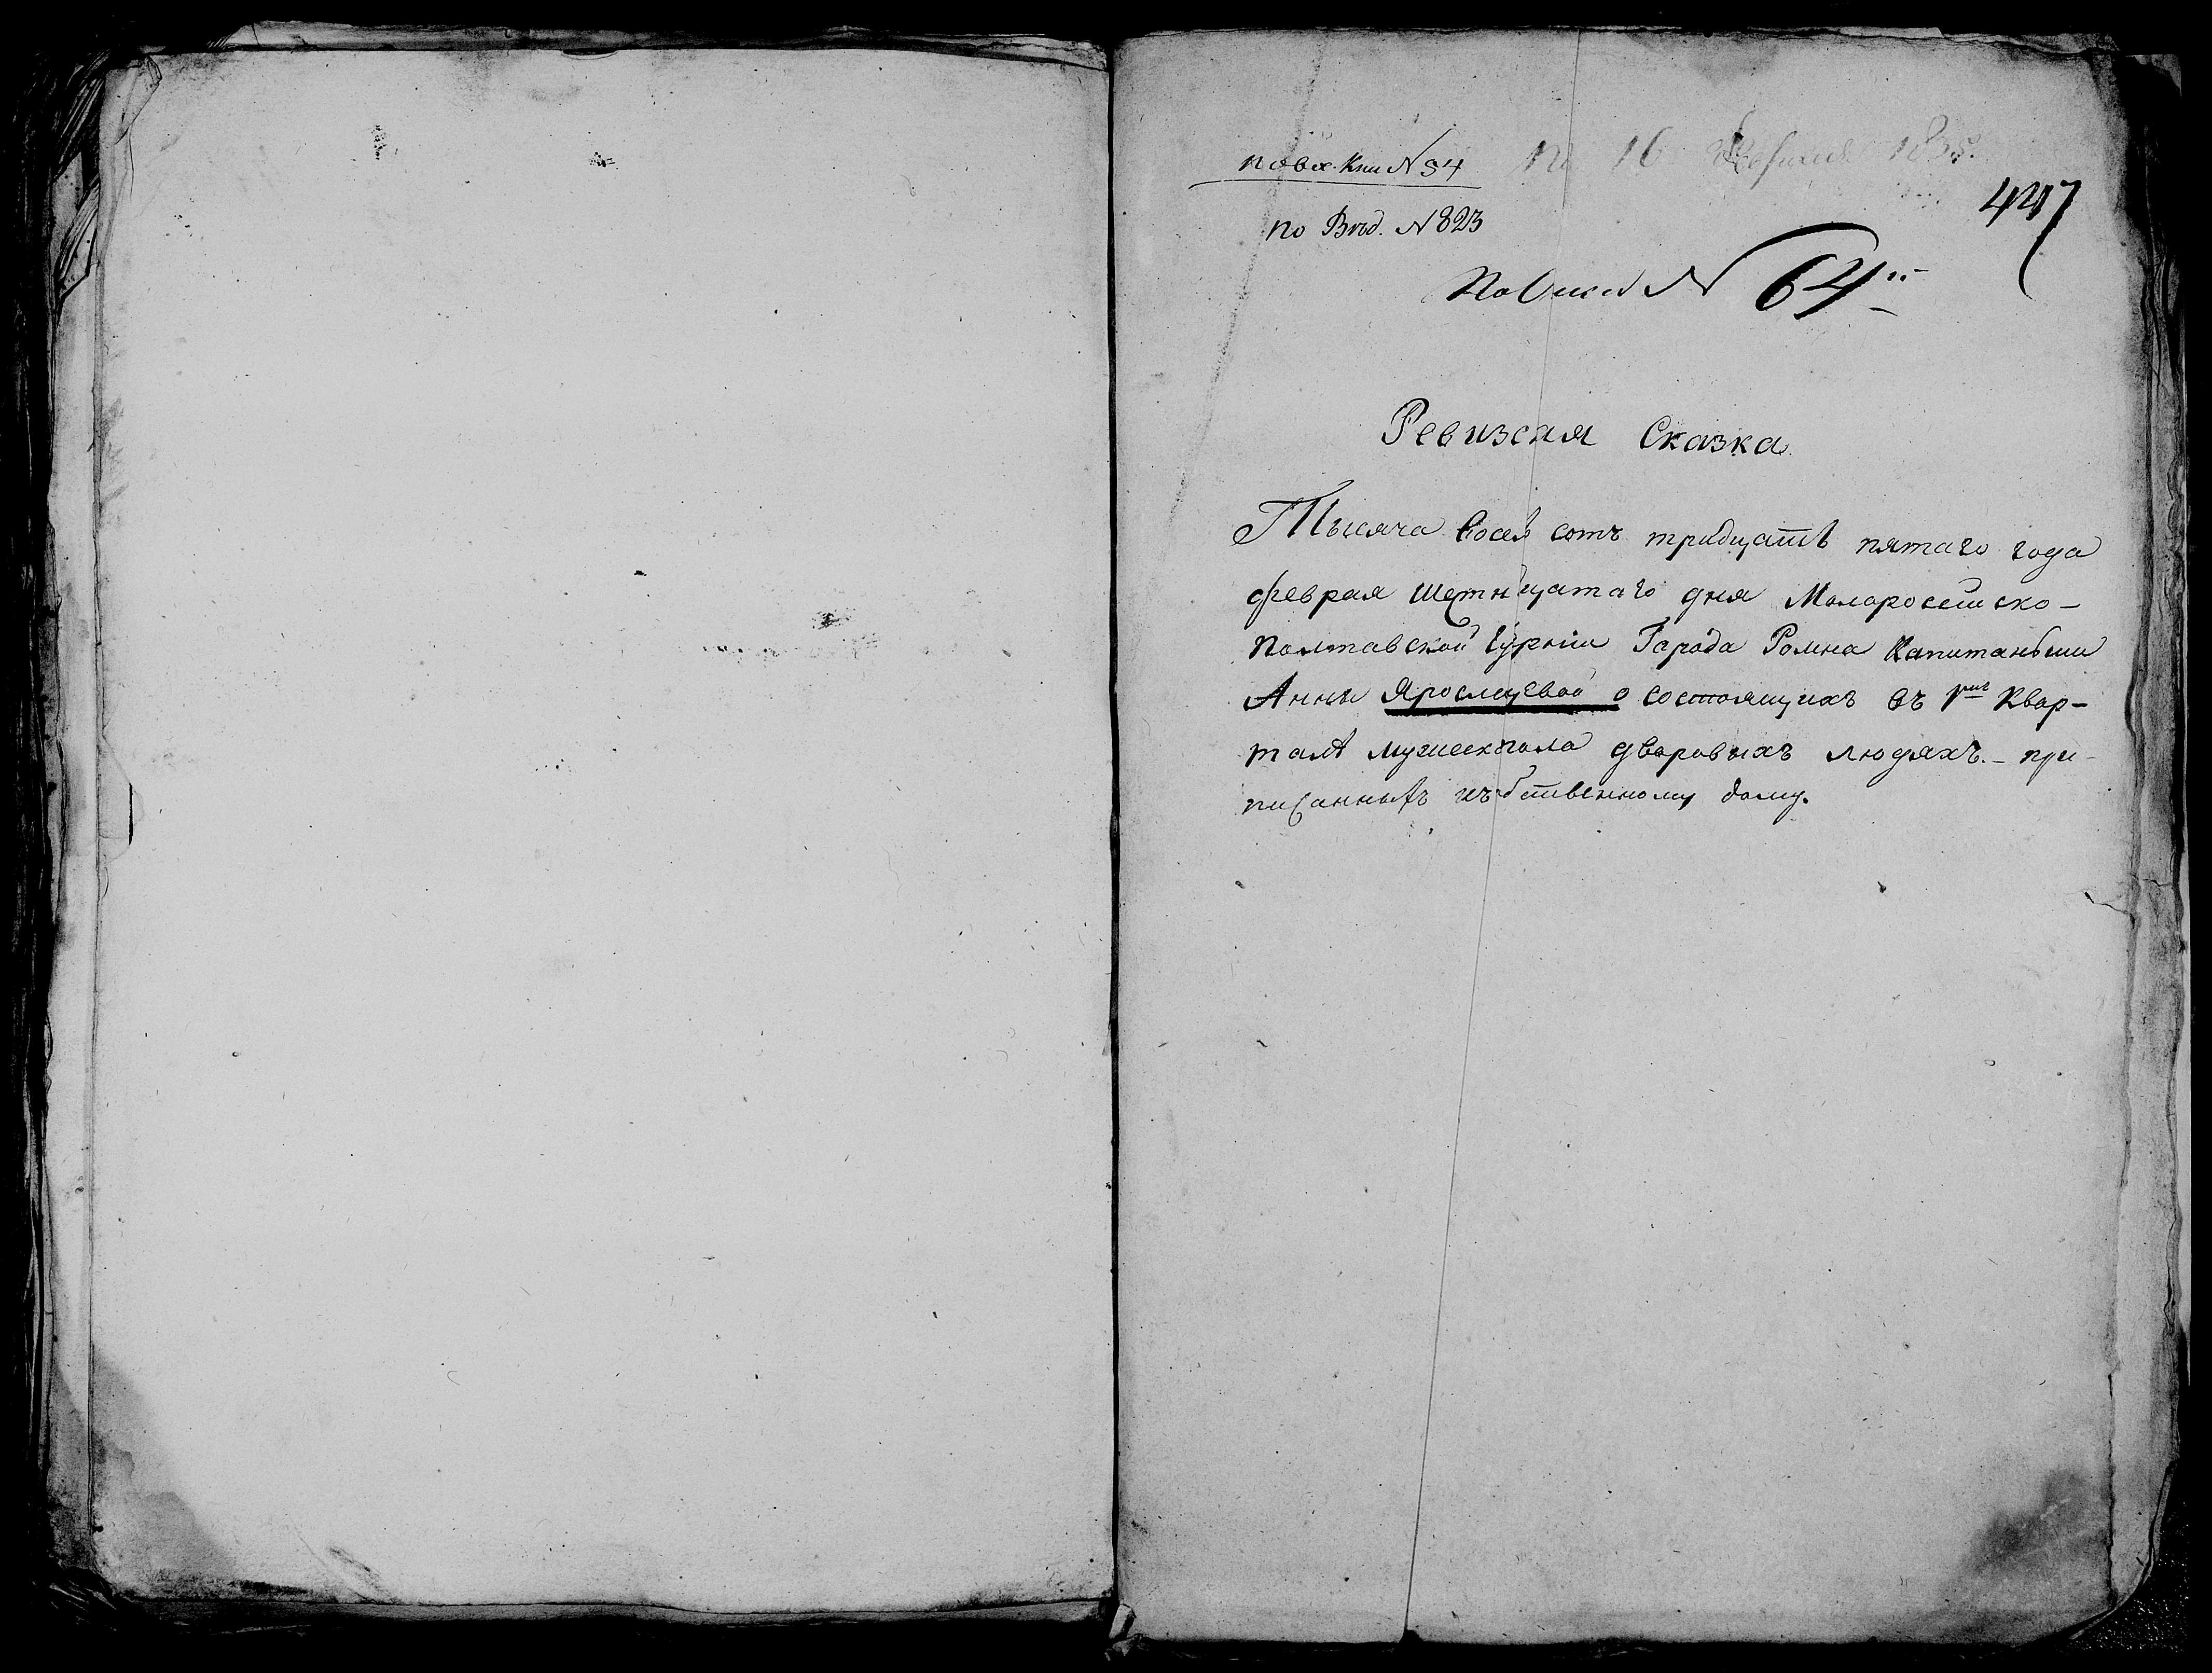 по вх. Кни № 54
по 16 февраля 1835.
447
по Вѣд. № 823
По описи № 64
Ревизская Сказка
Тысяча восем сотъ тридцать пятаго года
февраля Шетнцатаго дня Малоросейско-
полтавской Гурніи Города Ромна Капитаньши
Анны Ярославцевой о состоящихъ въ 1мъ Квар-
талѣ мужескпола дворовыхъ людяхъ. - при-
писанныхъ къ собственному дому.